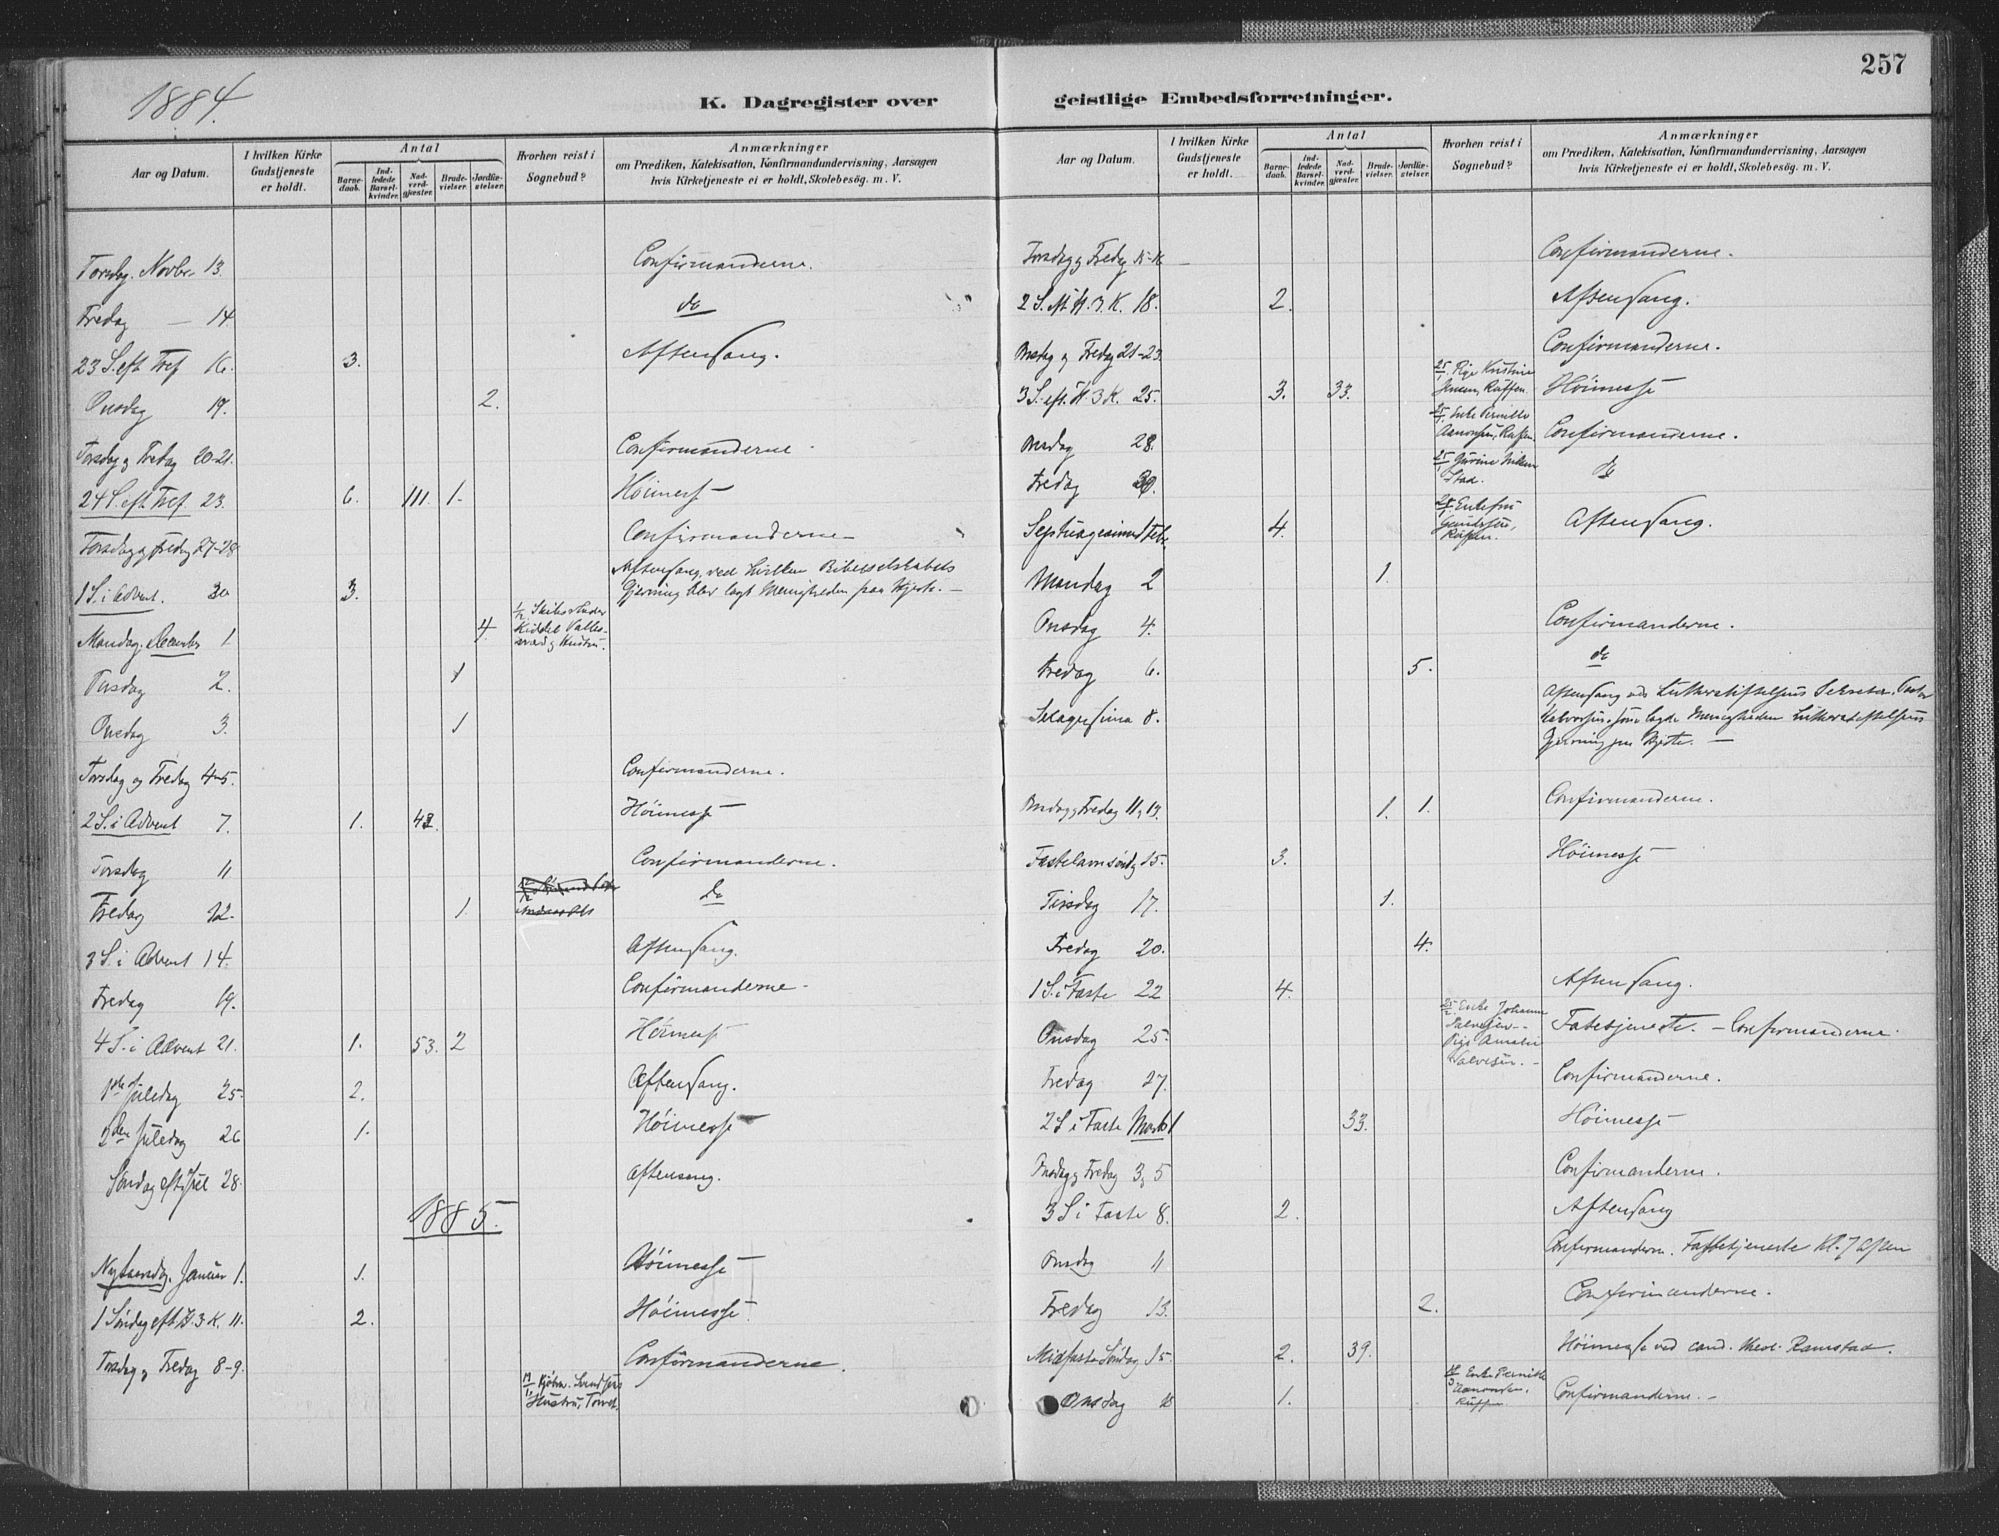 257
1884.
K. Dagregister over
Aar og Datum.
I hvilken Kirke Gudstjeneste er holdt.
Antal
Barnedaab.
Indledede Barselkvinder.
Nadverdgjæster.
Brudevielser.
Jordfæstelser.
Hvorhen reist i Sognebud?
Anmærkninger
om Prædiken, Katekisation, Konfirmandundervisning, Aarsagen
hvis Kirketjeneste ei er holdt, Skolebesøg. m. V.
Torsdag. Novbr. 13. Confirmanderne.
Fredag — 14. do
23 S. eft Tref 16. 3. Aftensang.
Onsdag 19. 2.
Torsdag og Fredag 20-21. Confirmanderne
24 S. eft Tref. 23. 6. 111. 1. Høimesse
Torsdag og Fredag 27-28. Confirmanderne
1 S. i Advent. 30 3. Aftensang, ved hvilken Bibelselskabets
Gjerning blev lagt Menigheden paa Hjerte. —
Mandag. December 1 4. 1/12
Tirsdag 2. 1
Onsdag 3. 1
Torsdag og Fredag 4-5. Confirmanderne.
2 S. i Advent 7. 1. 42. Høimesse
Torsdag 11 Confirmanderne.
Fredag 12. 1. do
3 S. i Advent 14. Aftensang.
Fredag 19. Confirmanderne
4 S. i Advent 21. 1. 53. 2 Høimesse
1ste Juledag 25. 2. Aftensang.
2den Juledag 26 1. Høimesse
Søndag eft Jul 28. Aftensang.
1885.
Nytaarsdag. Januar 1. 1. Høimesse
1 Søndag eft H. 3 K. 11. 2. Høimesse.
Torsdag og Fredag 8-9. Confirmanderne.
Hustru,
geistlige Embedsforretninger.
Aar og Datum.
I hvilken Kirke Gudstjeneste er holdt.
Antal
Barnedaab.
Indledede Barselkvinder.
Nadverdgjæster.
Brudevielser.
Jordfæstelser.
Hvorhen reist i Sognebud?
Anmærkninger
om Prædiken, Katekisation, Konfirmandundervisning, Aarsagen
hvis Kirketjeneste ei er holdt, Skolebesøg. m. V.
Torsdag og Fredag 15-16 Confirmanderne.
2 S. eft H. 3. K. 18. 2. Aftensang.
Onsdag og Fredag 21-23. Confirmanderne.
3 S. eft. H. 3 K. 25. 3. 33. 25/1 Pige Kristine Jensen, Høimesse
Onsdag 28. 25/1 Enke Pernille Aanonsen, Confirmanderne.
Fredag 30. do
Septuagesima Febr. 4. Aftensang.
Mandag 2 1.
Onsdag 4. Confirmanderne.
Fredag 6. 5. do
Sexagesima 8. Aftensang ved Lutherstiftelsens Sekretær, Pastor
Halvorsen, som lagde Menigheden Lutherstiftelsens
Gjerning paa Hjerte. —
Onsdag og Fredag 11, 13. 1. 1. Confirmanderne.
Fastelavnsøndag 15. 3. Høimesse
Tirsdag 17. 1.
Fredag 20. 4.
1 S. i Faste 22 4. Aftensang.
Onsdag 25. 25/2 Enke Johanne Salvesen - Pige Amalie Salvesen. - Fastetjeneste. — Confirmanderne.
Fredag 27. Confirmanderne.
2 S i Faste Marts 1 33. Høimesse
Onsdag og Fredag 3, 5 Confirmanderne.
3 S i Faste 8. 2. Aftensang
Onsdag 11 Confirmanderne. Fastetjeneste Kl. 7 aften
Fredag 13. 2. Confirmanderne.
Midfaste Søndag 15. 2. 39. Høimesse ved cand. theol. Ramstad.
Onsdag 18 1. 18/3 Enke Pernille Aanonsen, Confirmanderne. -